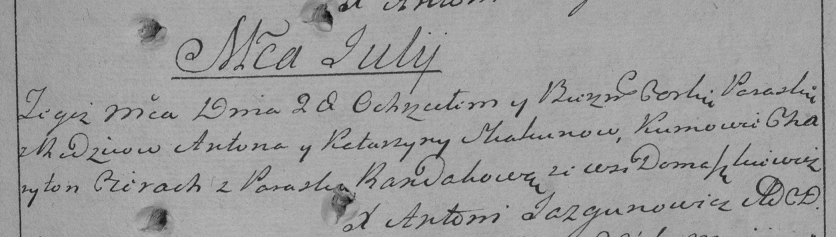 X Antoni
Mca Julij
Tegiż mca Dnia 28 Ochrzciłem y Bierzm Corkę Paraskę
z Rodzicow Antona y Katarzyny Skakunow, Kumowie Cha
ryton Zierach z Paraską Randakową ze wsi Domaszkiewicz
X Antoni Jazgunowicz